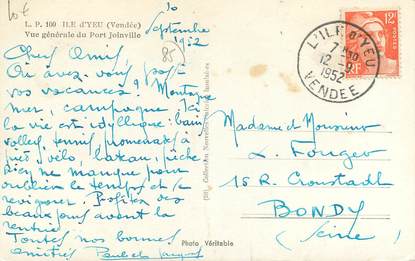 L. P. 100 ILE d'YEU (Vendée)
Vue générale du Port Joinville
10
Septembre
1952
85
Chers Amis,
Où avez-vous passé
vos vacances? Montagne
mer, campagne. Ici
la vie est idyllique: bain
volley, tennis, promenades à
vélo, bateau, pêche
Rien ne manque pour
oublier le temps et se
revigorer. Profitez des
beaux jours avant la
rentrée
Toutes nos bonnes
amitiés
Collection Nouvelle
Photo Véritable
12F
POSTES
RF
L'ILE D'YEU
7H30
12-9
1952
VENDEE
Madame et Monsieur
L. Fouger
15 R. Cronstadt
BONDY
(Seine)